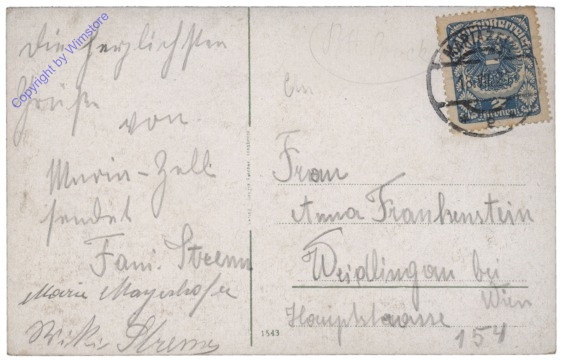 die herzlichsten
Grüße
von
Maria-Zell
sendet
Fami. Strenn
Marie Mayerhofer
Wiki Strenn
Copyright by Wimstore
Frau
Anna Frankenstein
Weidlingau bei
Wien
Hauptstrasse
154
1543
2
Kronen
e